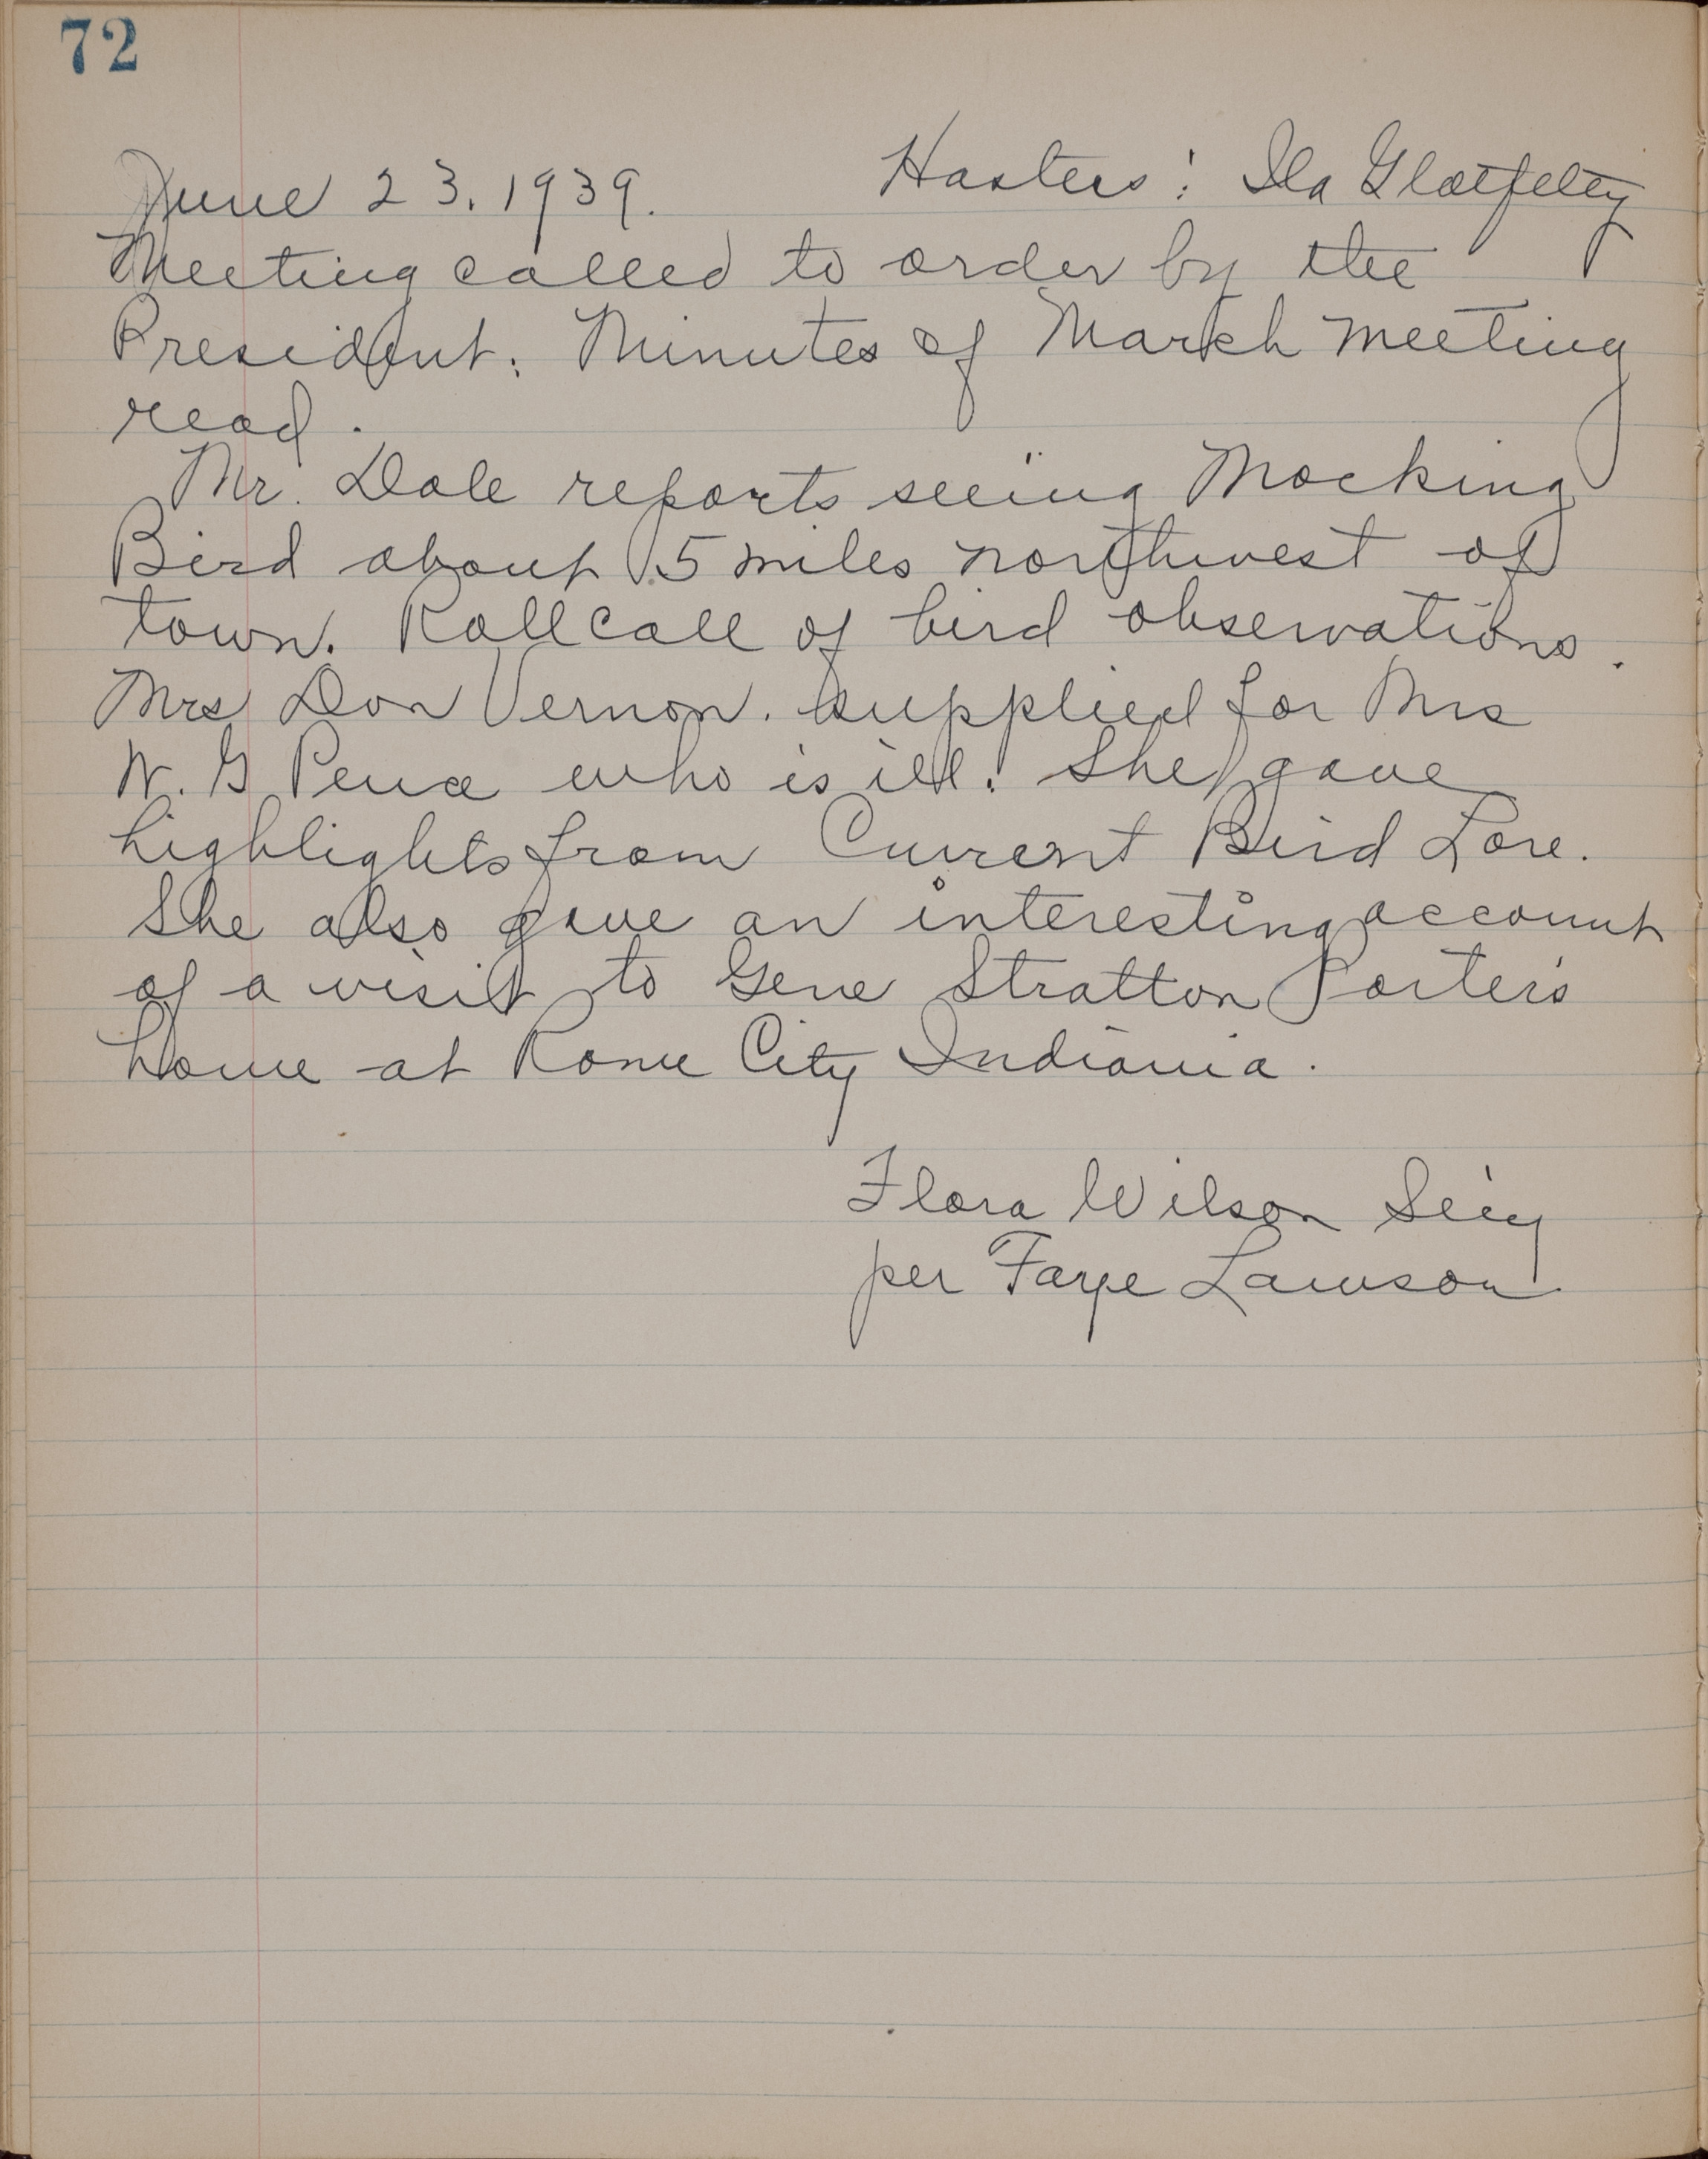 72
June 23, 1939. Hosters: Ila Glotfelty
Meeting called to order by the
President. Minutes of March meeting
read.
Mr. Dole reports seeing Mocking
Bird about 5 miles northwest of
town. Roll call of bird observations.
Mrs Don Vernon. supplied for Mrs
W. G Pence who is ill. She gave
highlights from Current Bird Lore.
She also gave an interesting account
of a visit to Gene Stratton Porter's
home at Rome City Indiania.
Flora Wilson Sec'y
per Faye Lawson